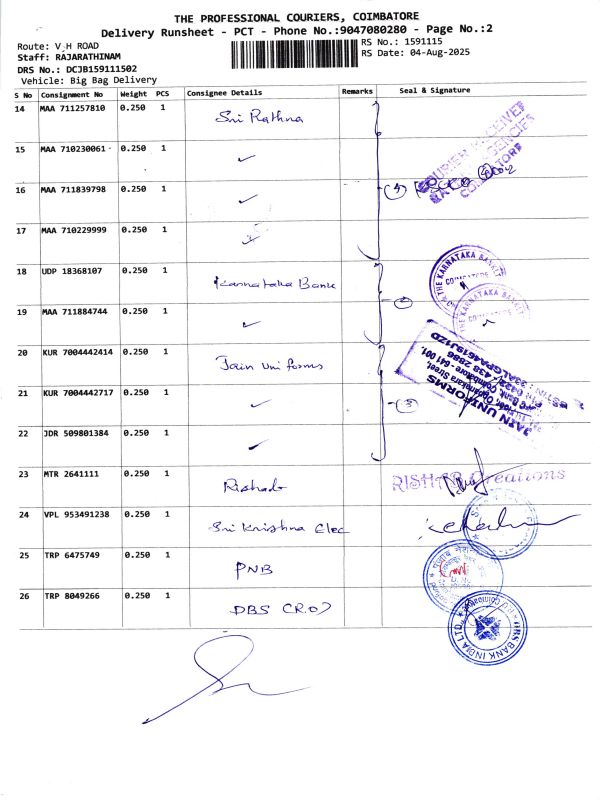 THE PROFESSIONAL COURIERS, COIMBATORE
Delivery Runsheet - PCT - Phone No.:9047080280 - Page No.:2
Route: V.H ROAD
RS No.: 1591115
Staff: RAJARATHINAM
RS Date: 04-Aug-2025
DRS No.: DCJB159111502
Vehicle: Big Bag Delivery
S No Consignment No Weight PCS Consignee Details Remarks Seal & Signature
14 MAA 711257810 0.250 1 Sri Rathna
15 MAA 710230061 0.250 1 ✓
16 MAA 711839798 0.250 1 ✓
17 MAA 710229999 0.250 1 ✓
COURIER RECEIVED
AGENCIES
COIMBATORE
18 UDP 18368107 0.250 1 Karnataka Bank
19 MAA 711884744 0.250 1 ✓
THE KARNATAKA BANK LTD
COIMBATORE
THE KARNATAKA BANK LTD
20 KUR 7004442414 0.250 1 Jain Uniforms
21 KUR 7004442717 0.250 1 ✓
22 JDR 509801384 0.250 1 ✓
(3)
JAIN UNIFORMS
Coimbatore - 641 001.
23 MTR 2641111 0.250 1 Rishab
RISHAB Creations
24 VPL 953491238 0.250 1 Sri Krishna Elec
25 TRP 6475749 0.250 1 PNB
26 TRP 8049266 0.250 1 DBS
DBS BANK INDIA LTD.